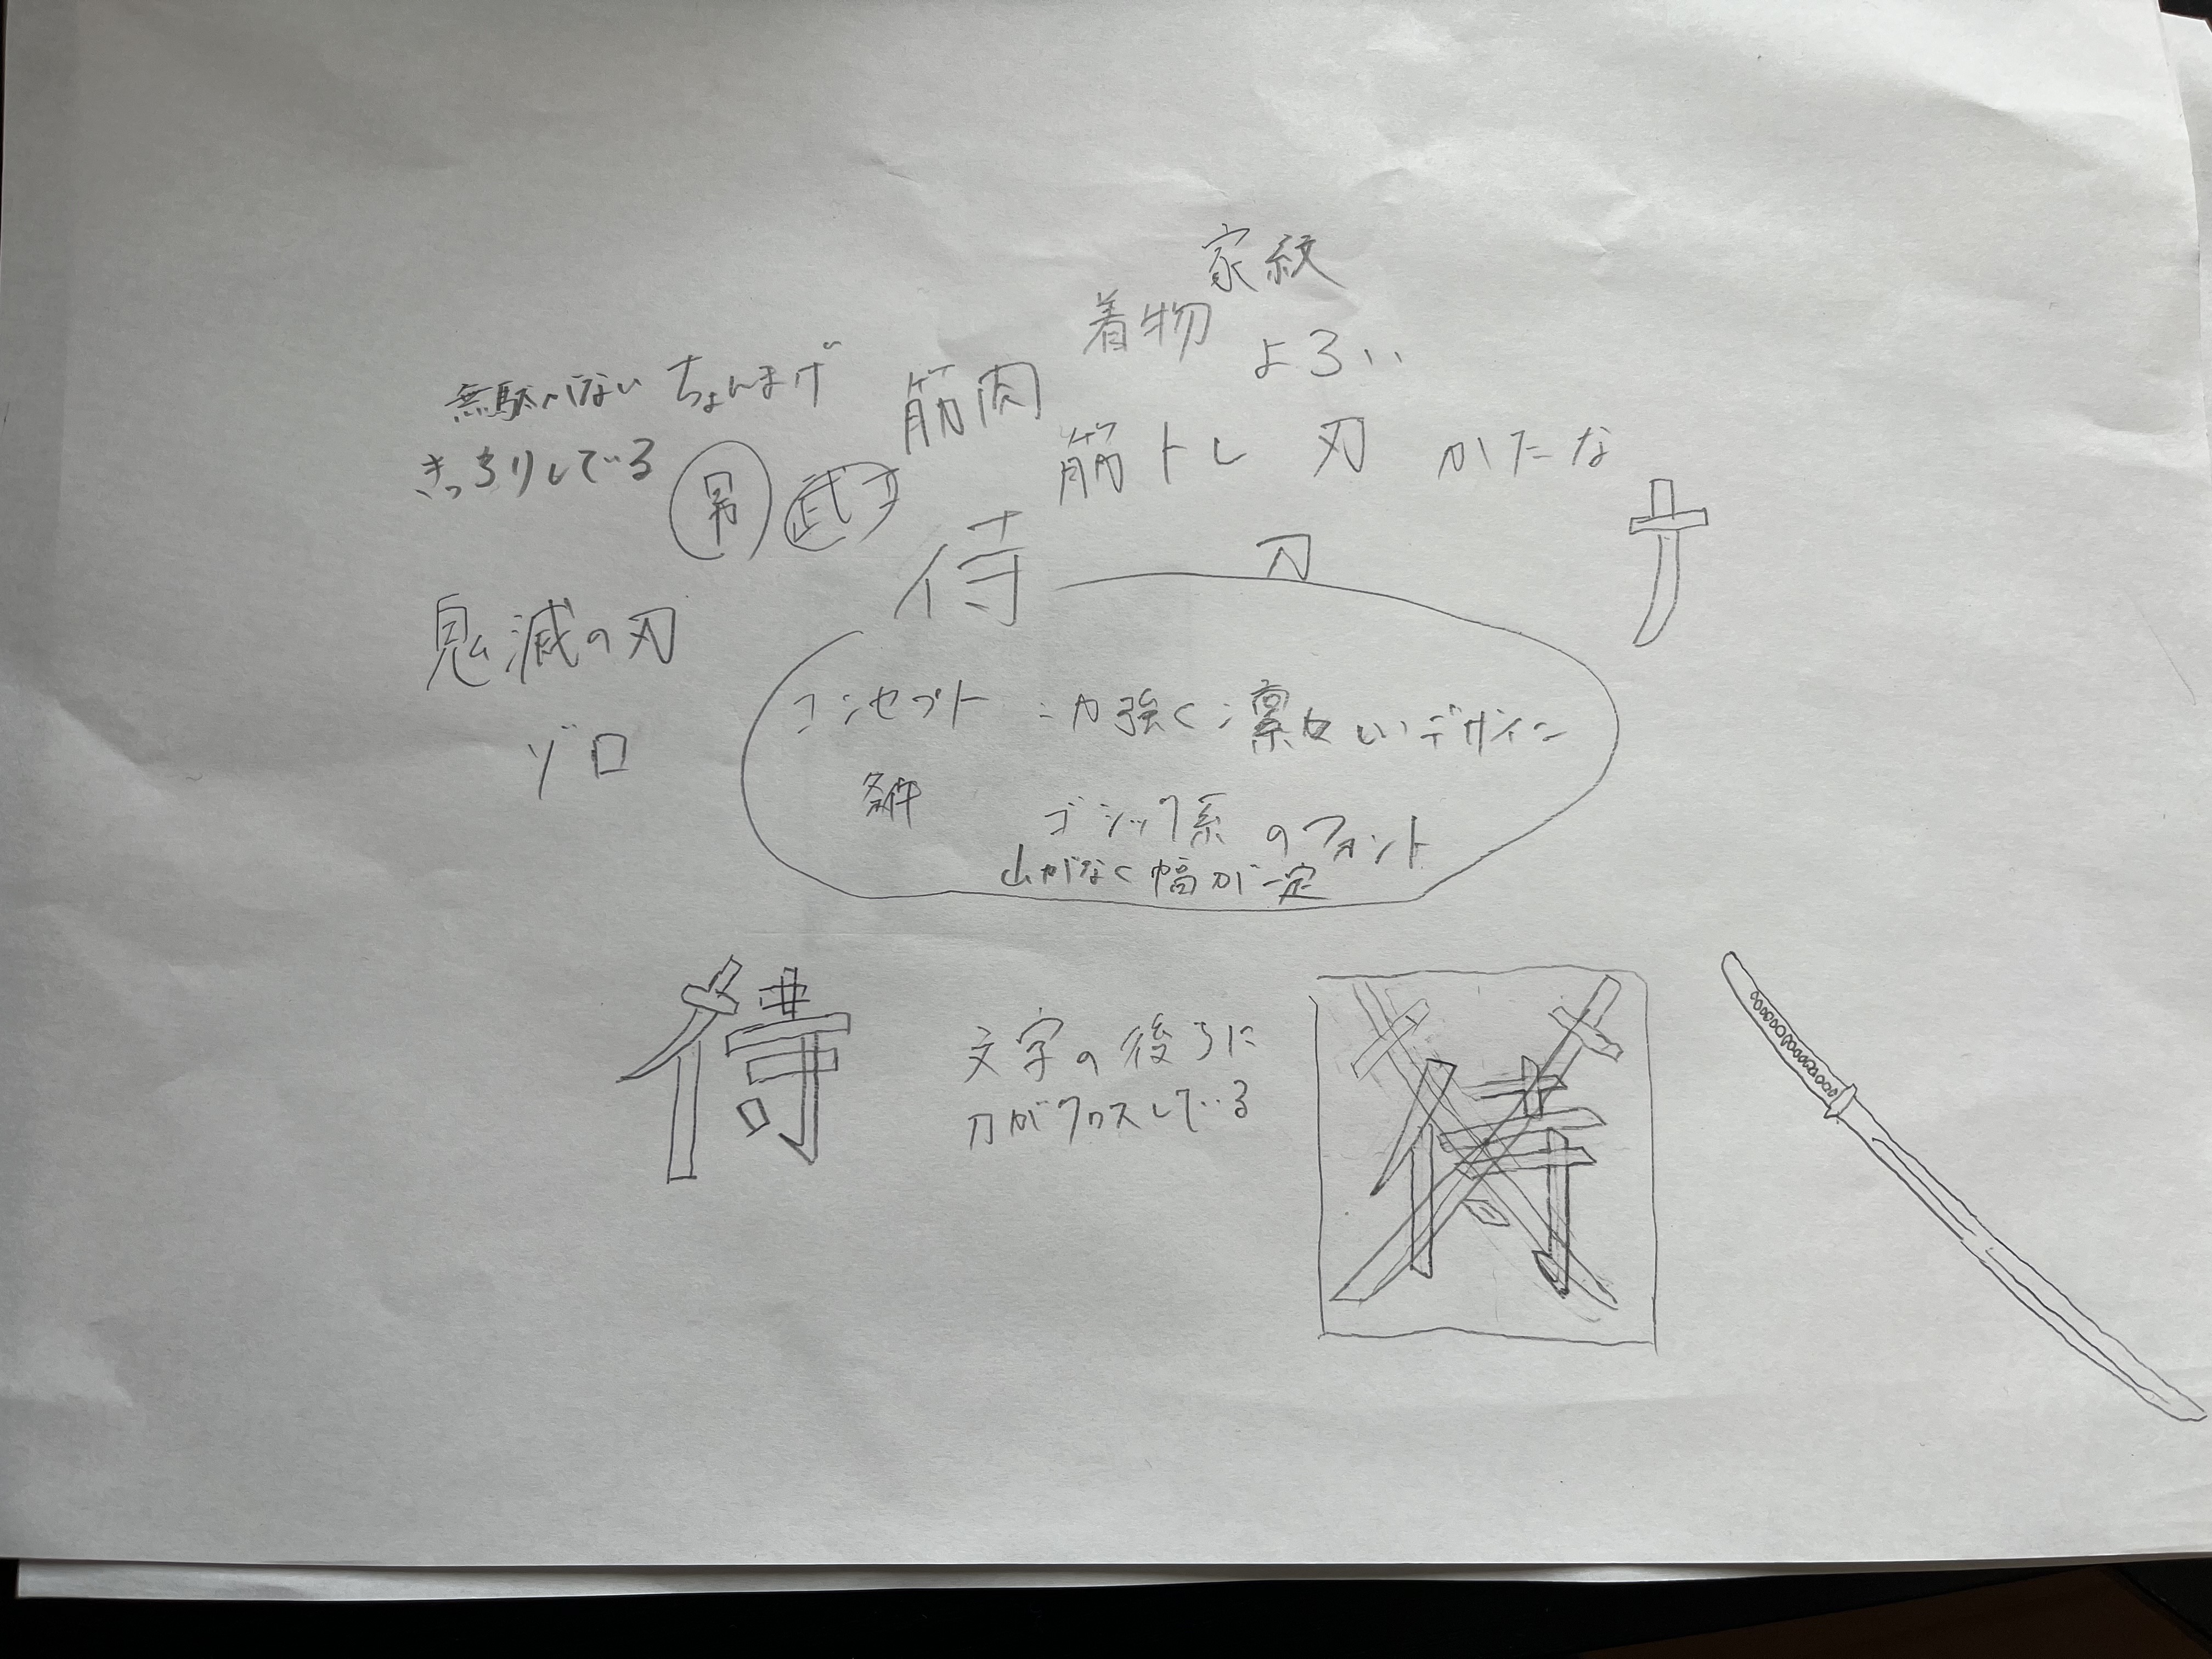 家紋
着物 よろい
無駄がない ちょんまげ 筋肉
きっちりしている 男 武士 筋トレ 刃 かたな
侍 刀
鬼滅の刃
ゾロ
コンセプト :力強く凛々しいデザイン
条件 ゴシック系のフォント
山がなく幅が一定
侍 文字の後ろに 侍
刀がクロスしている